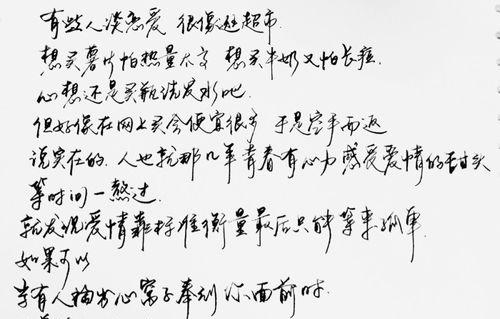 有些人谈恋爱 很像逛超市.
想买薯片怕热量太高 想买牛奶又怕长痘.
心想还是买瓶洗发水吧.
但好像在网上买会便宜很多 于是空手而返
说实在的. 人也就那几年青春有心力感受爱情的甜头
等时间一熬过.
就发现爱情靠标准衡量最后只能等来孤单.
如果可以
等有人掏出心窝子奉到你面前时.